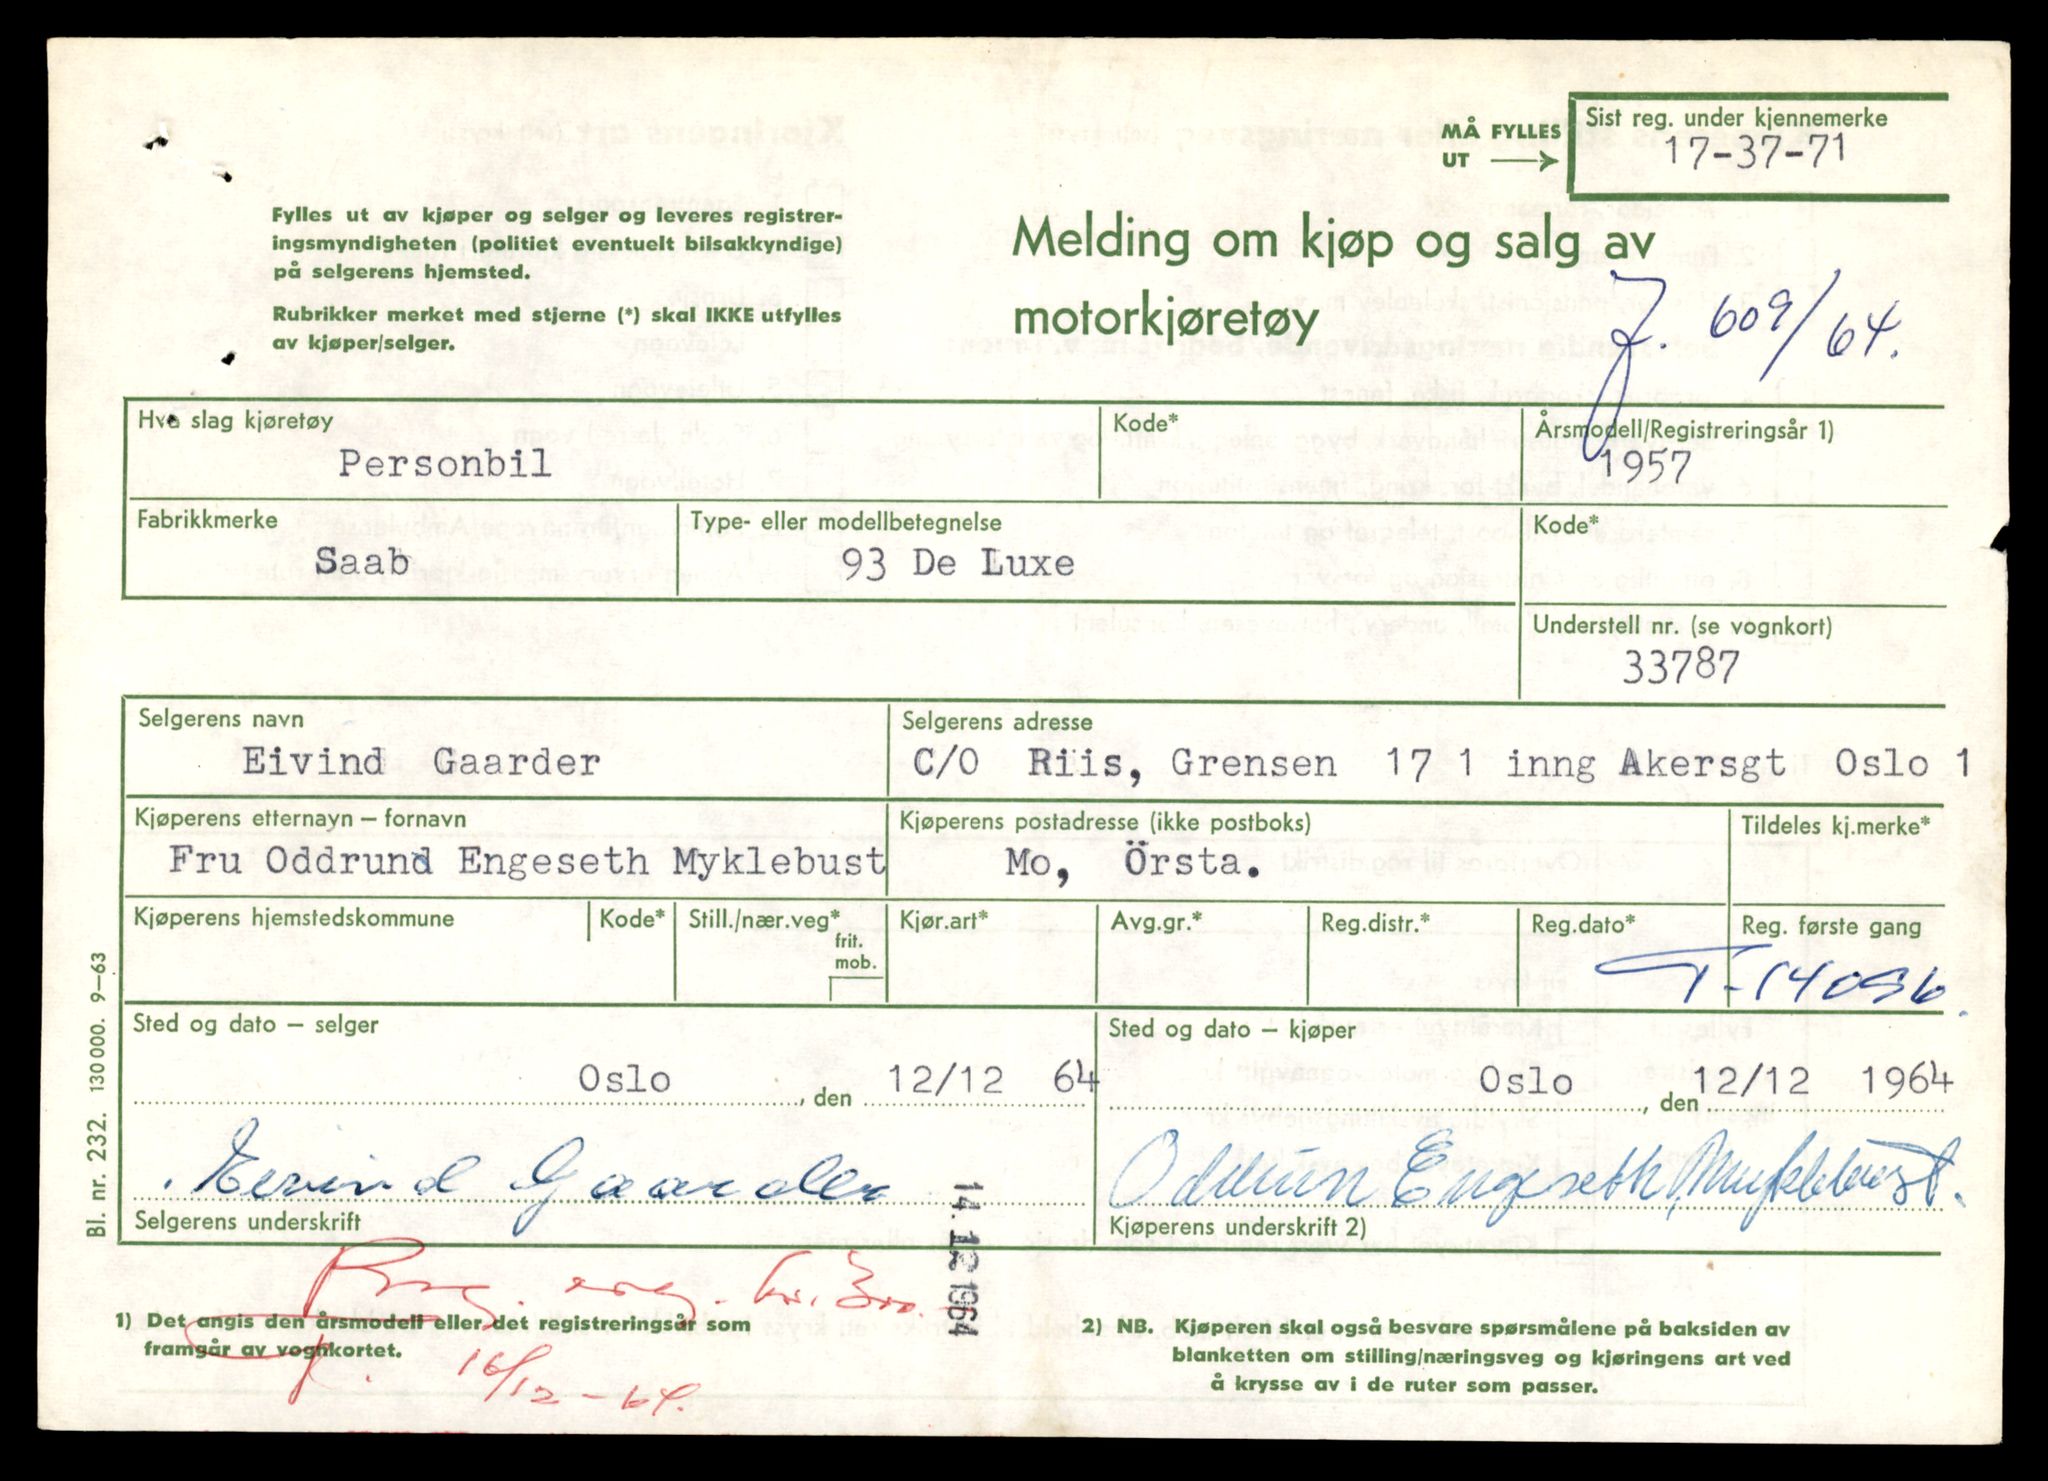 MÅ FYLLES UT
Sist reg. under kjennemerke
17-37-71
Fylles ut av kjøper og selger og leveres registrer-
ingsmyndigheten (politiet eventuelt bilsakkyndige)
på selgerens hjemsted.
Rubrikker merket med stjerne (*) skal IKKE utfylles
av kjøper/selger.
Melding om kjøp og salg av
motorkjøretøy
J. 609/64.
Hva slag kjøretøy
Personbil
Kode*
Årsmodell/Registreringsår 1)
1957
Fabrikkmerke
Saab
Type- eller modellbetegnelse
93 De Luxe
Kode*
Understell nr. (se vognkort)
33787
Selgerens navn
Eivind Gaarder
Selgerens adresse
C/O Riis, Grensen 17 1 inng Akersgt Oslo 1
Kjøperens etternavn – fornavn
Fru Oddrund Engeseth Myklebust
Kjøperens postadresse (ikke postboks)
Mo, Örsta.
Tildeles kj.merke*
Kjøperens hjemstedskommune
Kode*
Still./nær.veg*
frit.
mob.
Kjør.art*
Avg.gr.*
Reg.distr.*
Reg.dato*
Reg. første gang
T-14096.
Sted og dato – selger
Oslo, den 12/12 64
Sted og dato – kjøper
Oslo, den 12/12 1964
Eivind Gaarder
Selgerens underskrift
Oddrun Engeseth Myklebust.
Kjøperens underskrift 2)
14.12 1964
16/12-64.
1) Det angis den årsmodell eller det registreringsår som
framgår av vognkortet.
2) NB. Kjøperen skal også besvare spørsmålene på baksiden av
blanketten om stilling/næringsveg og kjøringens art ved
å krysse av i de ruter som passer.
Bl. nr. 232. 130 000. 9–63